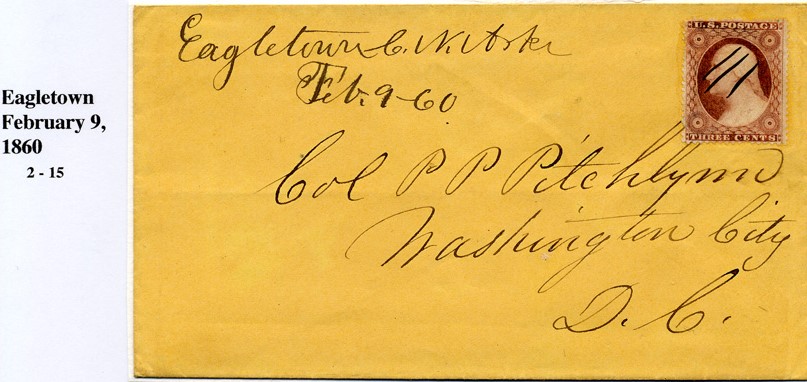 Eagletown
February 9,
1860
2 - 15
Eagletown C. N. Arks
Feb. 9 - 60
U.S. POSTAGE
THREE CENTS
Col P P Pitchlynn
Washington City
D. C.